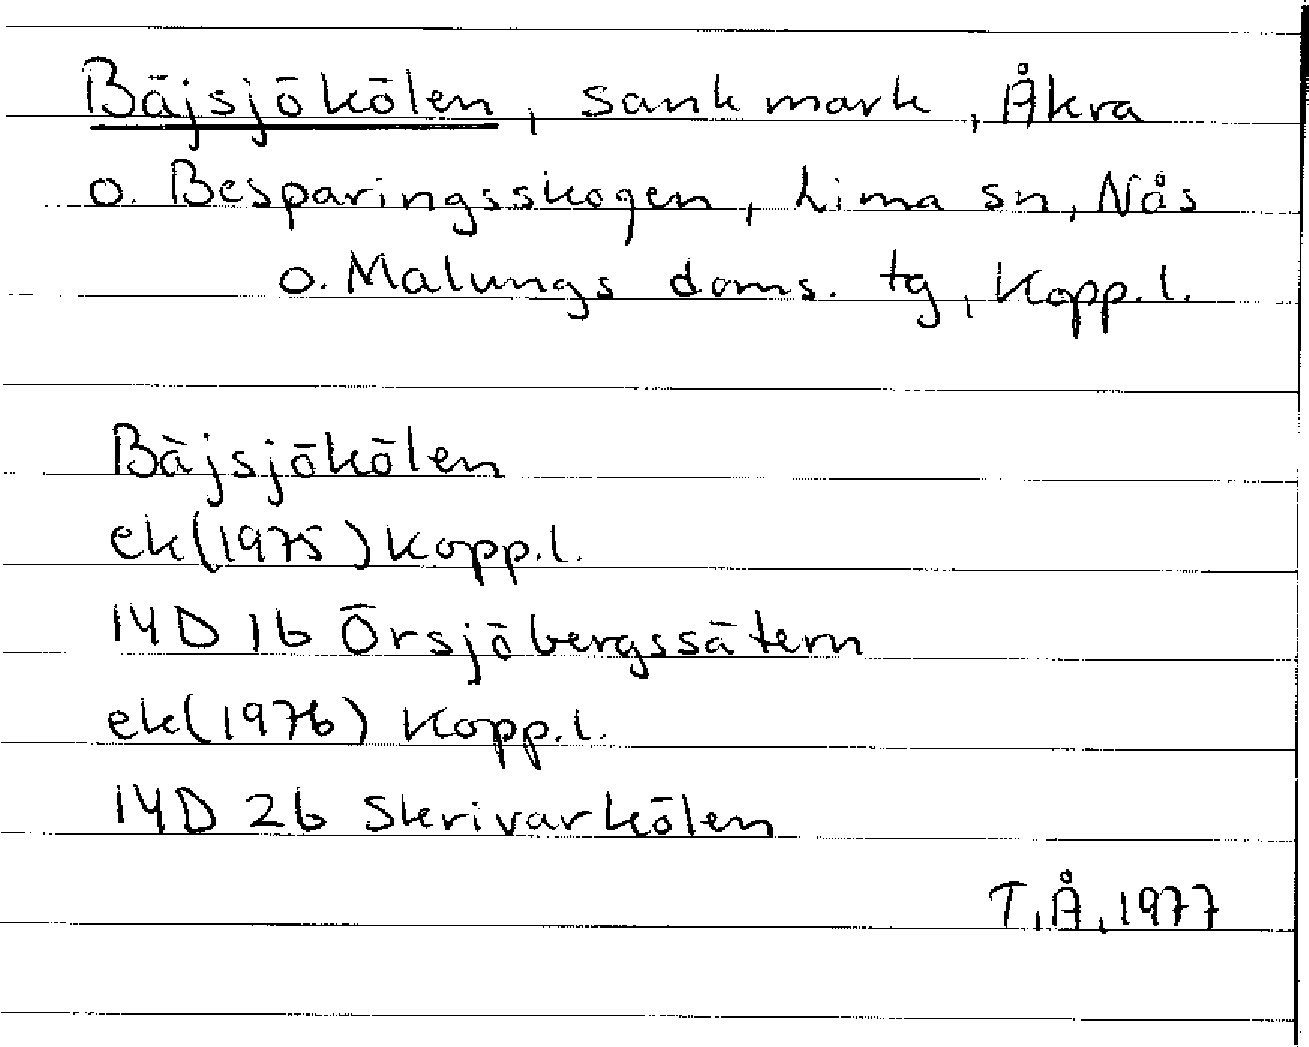 Bäjsjökölen, sankmark, Åkra
o. Besparingsskogen, Lima sn, Nås
o. Malungs doms. tg, Kopp.l.
Bäjsjökölen
ek(1975) Kopp.l.
14D 1b Örsjöbergssätern
ek(1976) Kopp.l.
14D 2b Skrivarkölen
T.Å, 1977